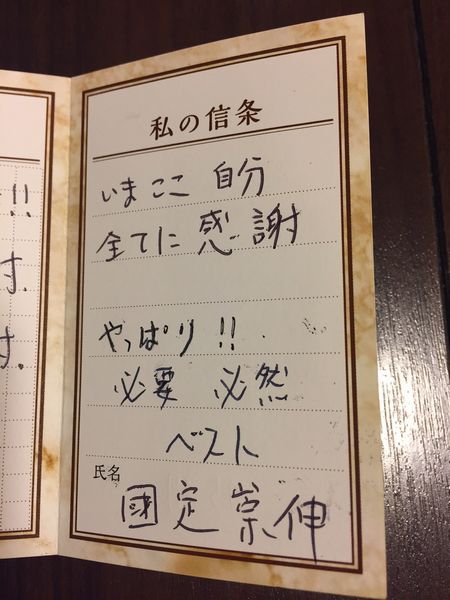 !!
す.
す.
私の信条
いま ここ 自分
全てに 感謝
やっぱり!!
必要 必然
ベスト
氏名
國定 崇伸